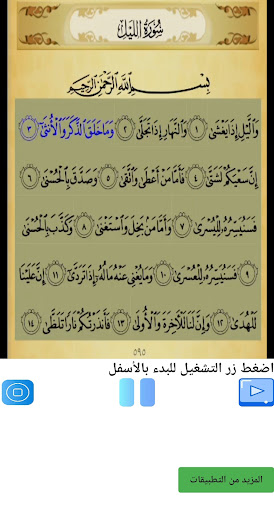 سُورَةُ اللَّيْلِ
بِسْمِ اللَّهِ الرَّحْمَٰنِ الرَّحِيمِ
وَاللَّيْلِ إِذَا يَغْشَىٰ ١ وَالنَّهَارِ إِذَا تَجَلَّىٰ ٢ وَمَا خَلَقَ الذَّكَرَ وَالْأُنثَىٰ ٣
إِنَّ سَعْيَكُمْ لَشَتَّىٰ ٤ فَأَمَّا مَنْ أَعْطَىٰ وَاتَّقَىٰ ٥ وَصَدَّقَ بِالْحُسْنَىٰ ٦
فَسَنُيَسِّرُهُ لِلْيُسْرَىٰ ٧ وَأَمَّا مَن بَخِلَ وَاسْتَغْنَىٰ ٨ وَكَذَّبَ بِالْحُسْنَىٰ
٩ فَسَنُيَسِّرُهُ لِلْعُسْرَىٰ ١٠ وَمَا يُغْنِي عَنْهُ مَالُهُ إِذَا تَرَدَّىٰ ١١ إِنَّ عَلَيْنَا
لَلْهُدَىٰ ١٢ وَإِنَّ لَنَا لَلْآخِرَةَ وَالْأُولَىٰ ١٣ فَأَنذَرْتُكُمْ نَارًا تَلَظَّىٰ ١٤
٥٩٥
اضغط زر التشغيل للبدء بالأسفل
المزيد من التطبيقات